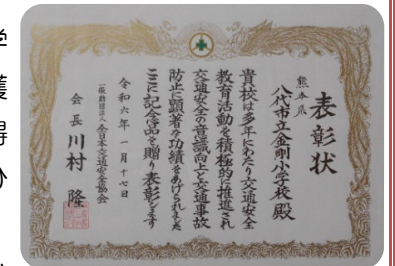 表彰状
熊本県
八代市立金剛小学校殿
貴校は多年にわたり交通安全
教育活動を積極的に推進され
交通安全の意識向上と交通事故
防止に顕著な功績をあげられました
ここに記念品を贈り表彰します
令和六年一月十七日
一般財団法人全日本交通安全協会
会長 川村 隆
学
護
得